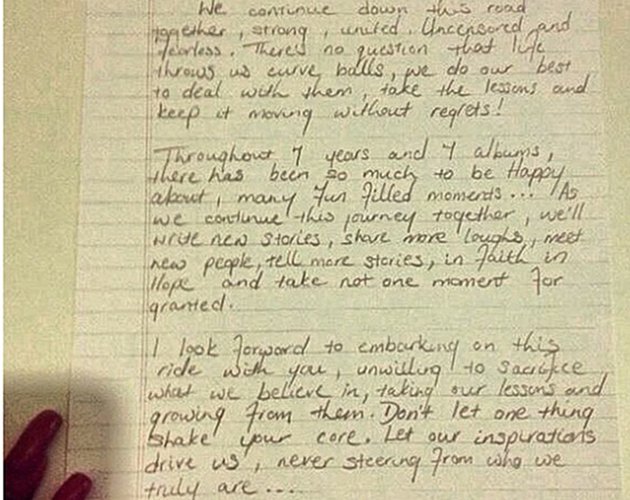 We continue down this road
together, strong, united. Uncensored and
fearless. There's no question that life
throws us curve balls, we do our best
to deal with them, take the lessons and
keep it moving without regrets!
Throughout 7 years and 7 albums,
there has been so much to be Happy
about, many fun filled moments... As
we continue this journey together, we'll
write new stories, share more laughs, meet
new people, tell more stories, in faith in
Hope and take not one moment for
granted.
I look forward to embarking on this
ride with you, unwilling to sacrifice
what we believe in, taking our lessons and
growing from them. Don't let one thing
shake your core. Let our inspirations
drive us, never steering from who we
truly are...